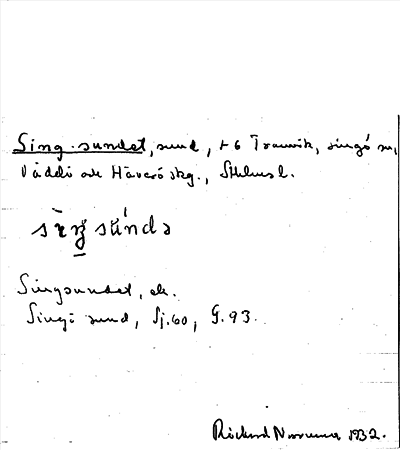 Sing-sundet, sund, t G Tranvik, singö sn,
Väddö ok Häverö skg., Sthlms l.
sìŋ súndə
Singsundet, ek.
Singö sund, Sj. 60, G. 93.
Rickard 1932.